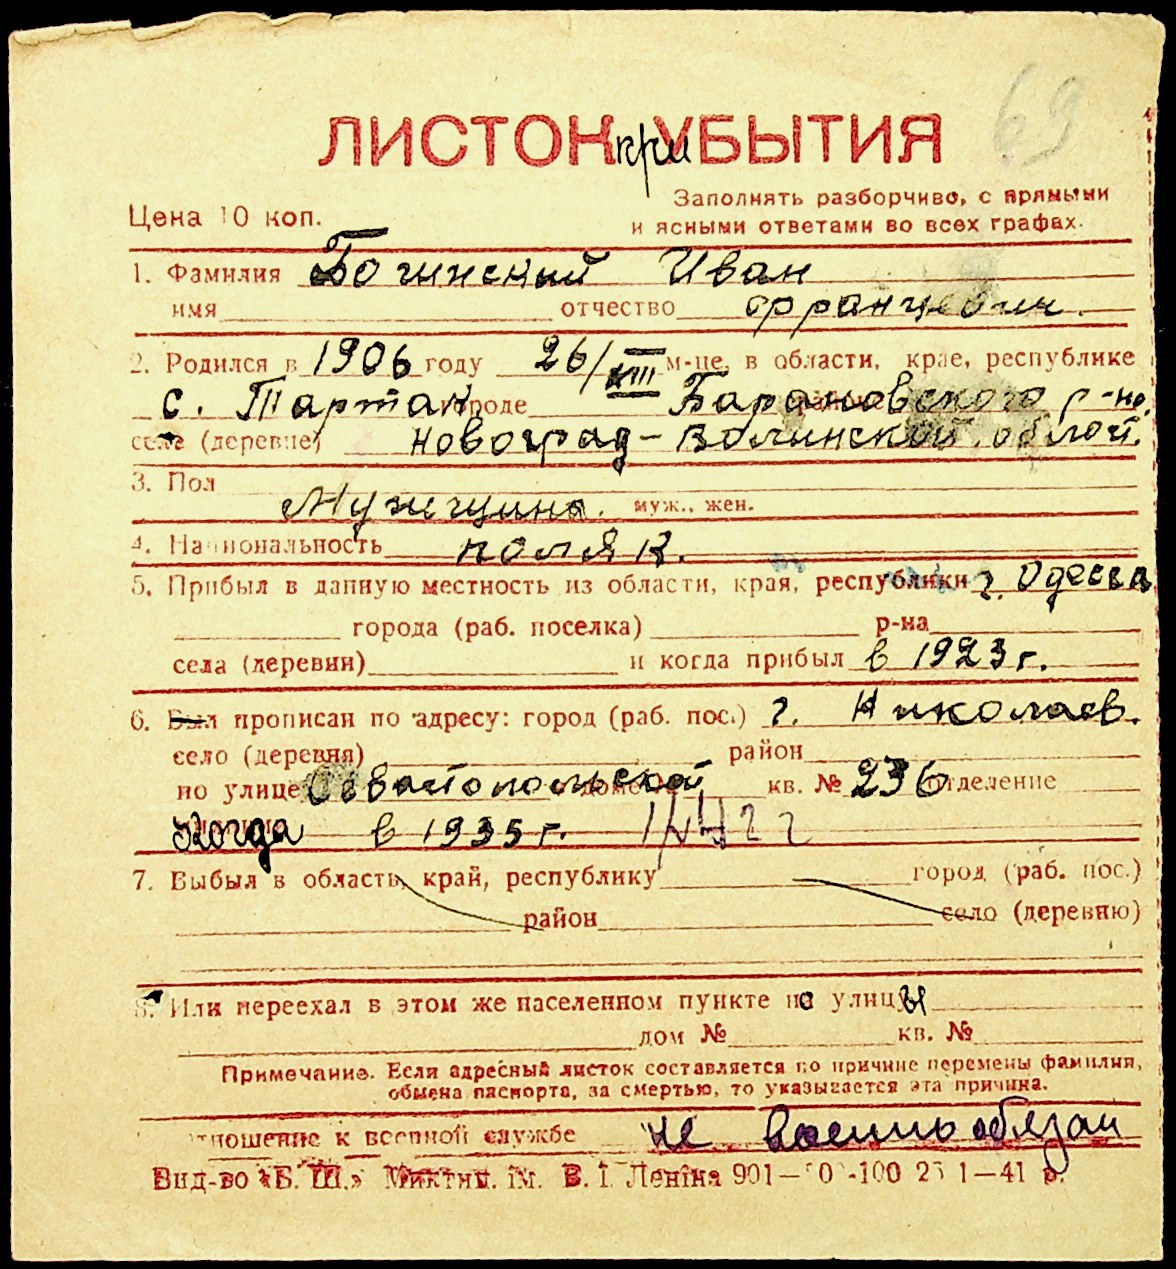 69
ЛИСТОК при УБЫТИЯ
Заполнять разборчиво, с прямыми
Цена 10 коп.
и ясными ответами во всех графах.
1. Фамилия Божинский Иван
имя отчество Францевич.
2. Родился в 1906 году 26/VIII м-це, в области, крае, республике
с. Тартак городе Барановского р-на,
селе (деревне) Новоград-Волинской облсти.
3. Пол
Мужщина. муж., жен.
4. Национальность поляк.
5. Прибыл в данную местность из области, края, республики г. Одесса
города (раб. поселка) р-на
села (деревни) и когда прибыл в 1923 г.
6. Был прописан по адресу: город (раб. пос.) г. Николаев.
село (деревня) район
по улице Севастопольской кв. № 236 отделение
Когда в 1935 г.
7. Выбыл в область, край, республику город (раб. пос.)
район село (деревню)
8. Или переехал в этом же населенном пункте на улицы
дом № кв. №
Примечание. Если адресный листок составляется по причине перемены фамилии,
обмена паспорта, за смертью, то указывается эта причина.
отношение к военной службе не военно обязан
Вид-во «Б. Ш.» Миктип. ім. В. І. Леніна 901— -100 1—41 р.